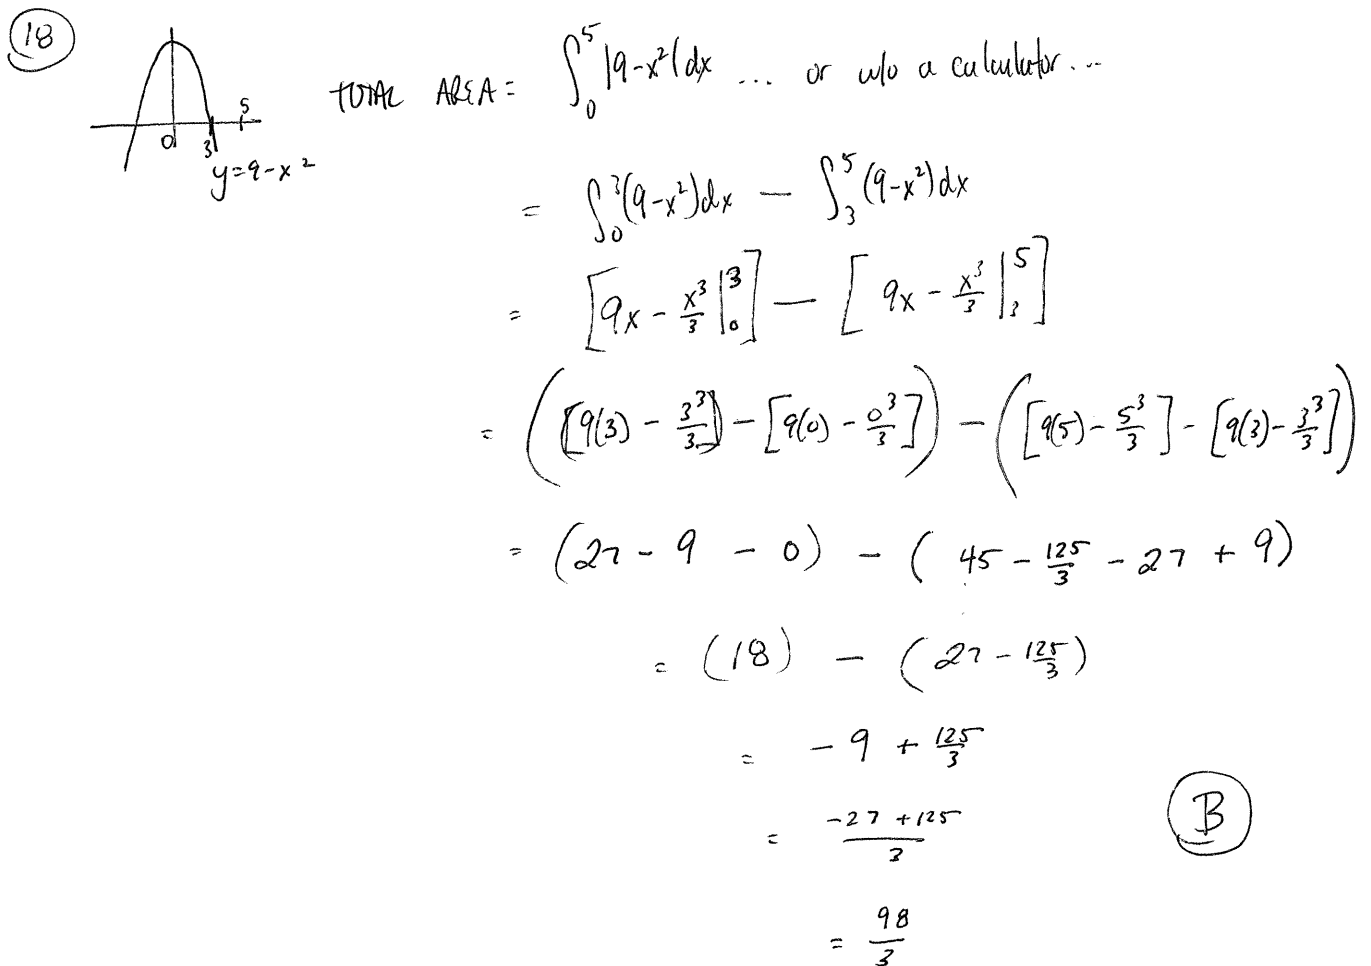 18
TOTAL AREA = ∫₀⁵ |9-x²| dx ... or w/o a calculator...
5
0 3
y=9-x²
= ∫₀³ (9-x²)dx — ∫₃⁵ (9-x²)dx
= [9x - x³/3 |₀³] — [9x - x³/3 |₃⁵]
= ([9(3) - 3³/3] - [9(0) - 0³/3]) - ([9(5) - 5³/3] - [9(3) - 3³/3])
= (27 - 9 - 0) - (45 - 125/3 - 27 + 9)
= (18) - (27 - 125/3)
= -9 + 125/3
= (-27 + 125)/3
B
= 98/3